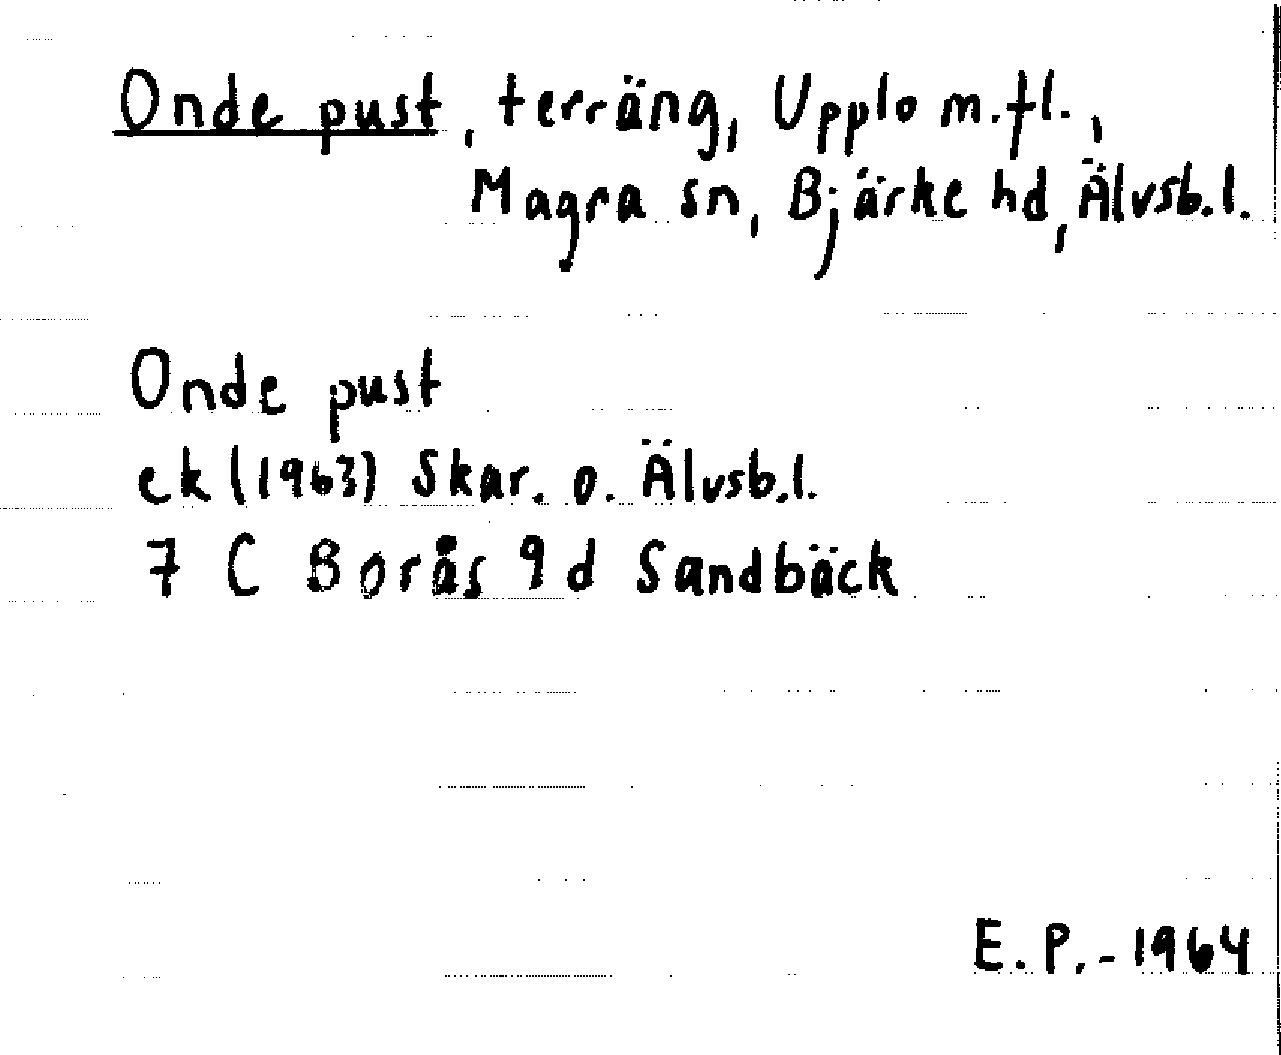 Onde pust, terräng, Upplo m.fl.,
Magra sn, Bjärke hd, Älvsb.l.
Onde pust
ek (1963) Skar. o. Älvsb.l.
7 C Borås 9 d Sandbäck
E.P.-1964